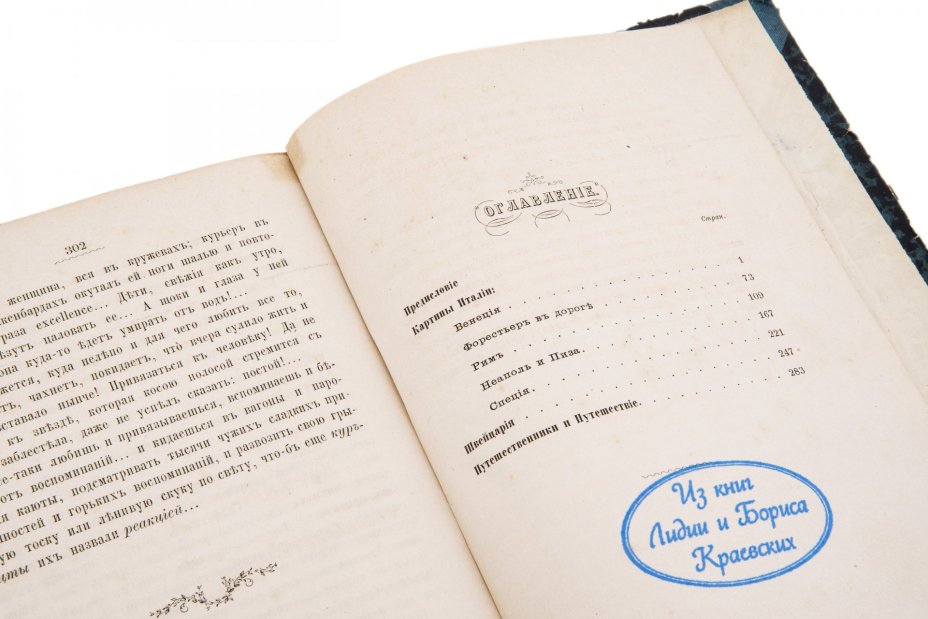 302
женщина, вся въ кружевахъ; курьеръ въ
кенбардахъ окуталъ ей ноги шалью и повто-
раза excellence... Дѣти, свѣжія какъ утро,
ѣзутъ цаловать ее... А щоки и глаза у ней
она куда-то ѣдетъ умирать отъ водъ!...
жется, куда нелѣпо и для чего любить все то,
етъ, чахнетъ, покидаетъ, что вчера сулило жить и
ставало нынче! Привязаться къ человѣку! Да не
къ звѣздѣ, которая косою полосой стремится съ
заблестѣла, даже не успѣлъ сказать: постой!...
се-таки любишь и привязываешься, вспоминаешь и бѣ-
отъ воспоминаній... и кидаешься въ вагоны и паро-
я каюты, подсматривать тысячи чужихъ сладкихъ при-
нностей и горькихъ воспоминаній, и развозить свою гры-
ую тоску или лѣнивую скуку по свѣту, что-бъ еще куръ-
циты ихъ назвали реакціей...
"ОГЛАВЛЕНІЕ."
Стран.
Предисловіе 1
Картины Италіи:
Венеція 73
Форестьеръ въ дорогѣ 109
Римъ 167
Неаполь и Пиза. 221
Спеція. 247
Швейцарія 283
Путешественники и Путешествіе.
Из книг
Лидии и Бориса
Краевских